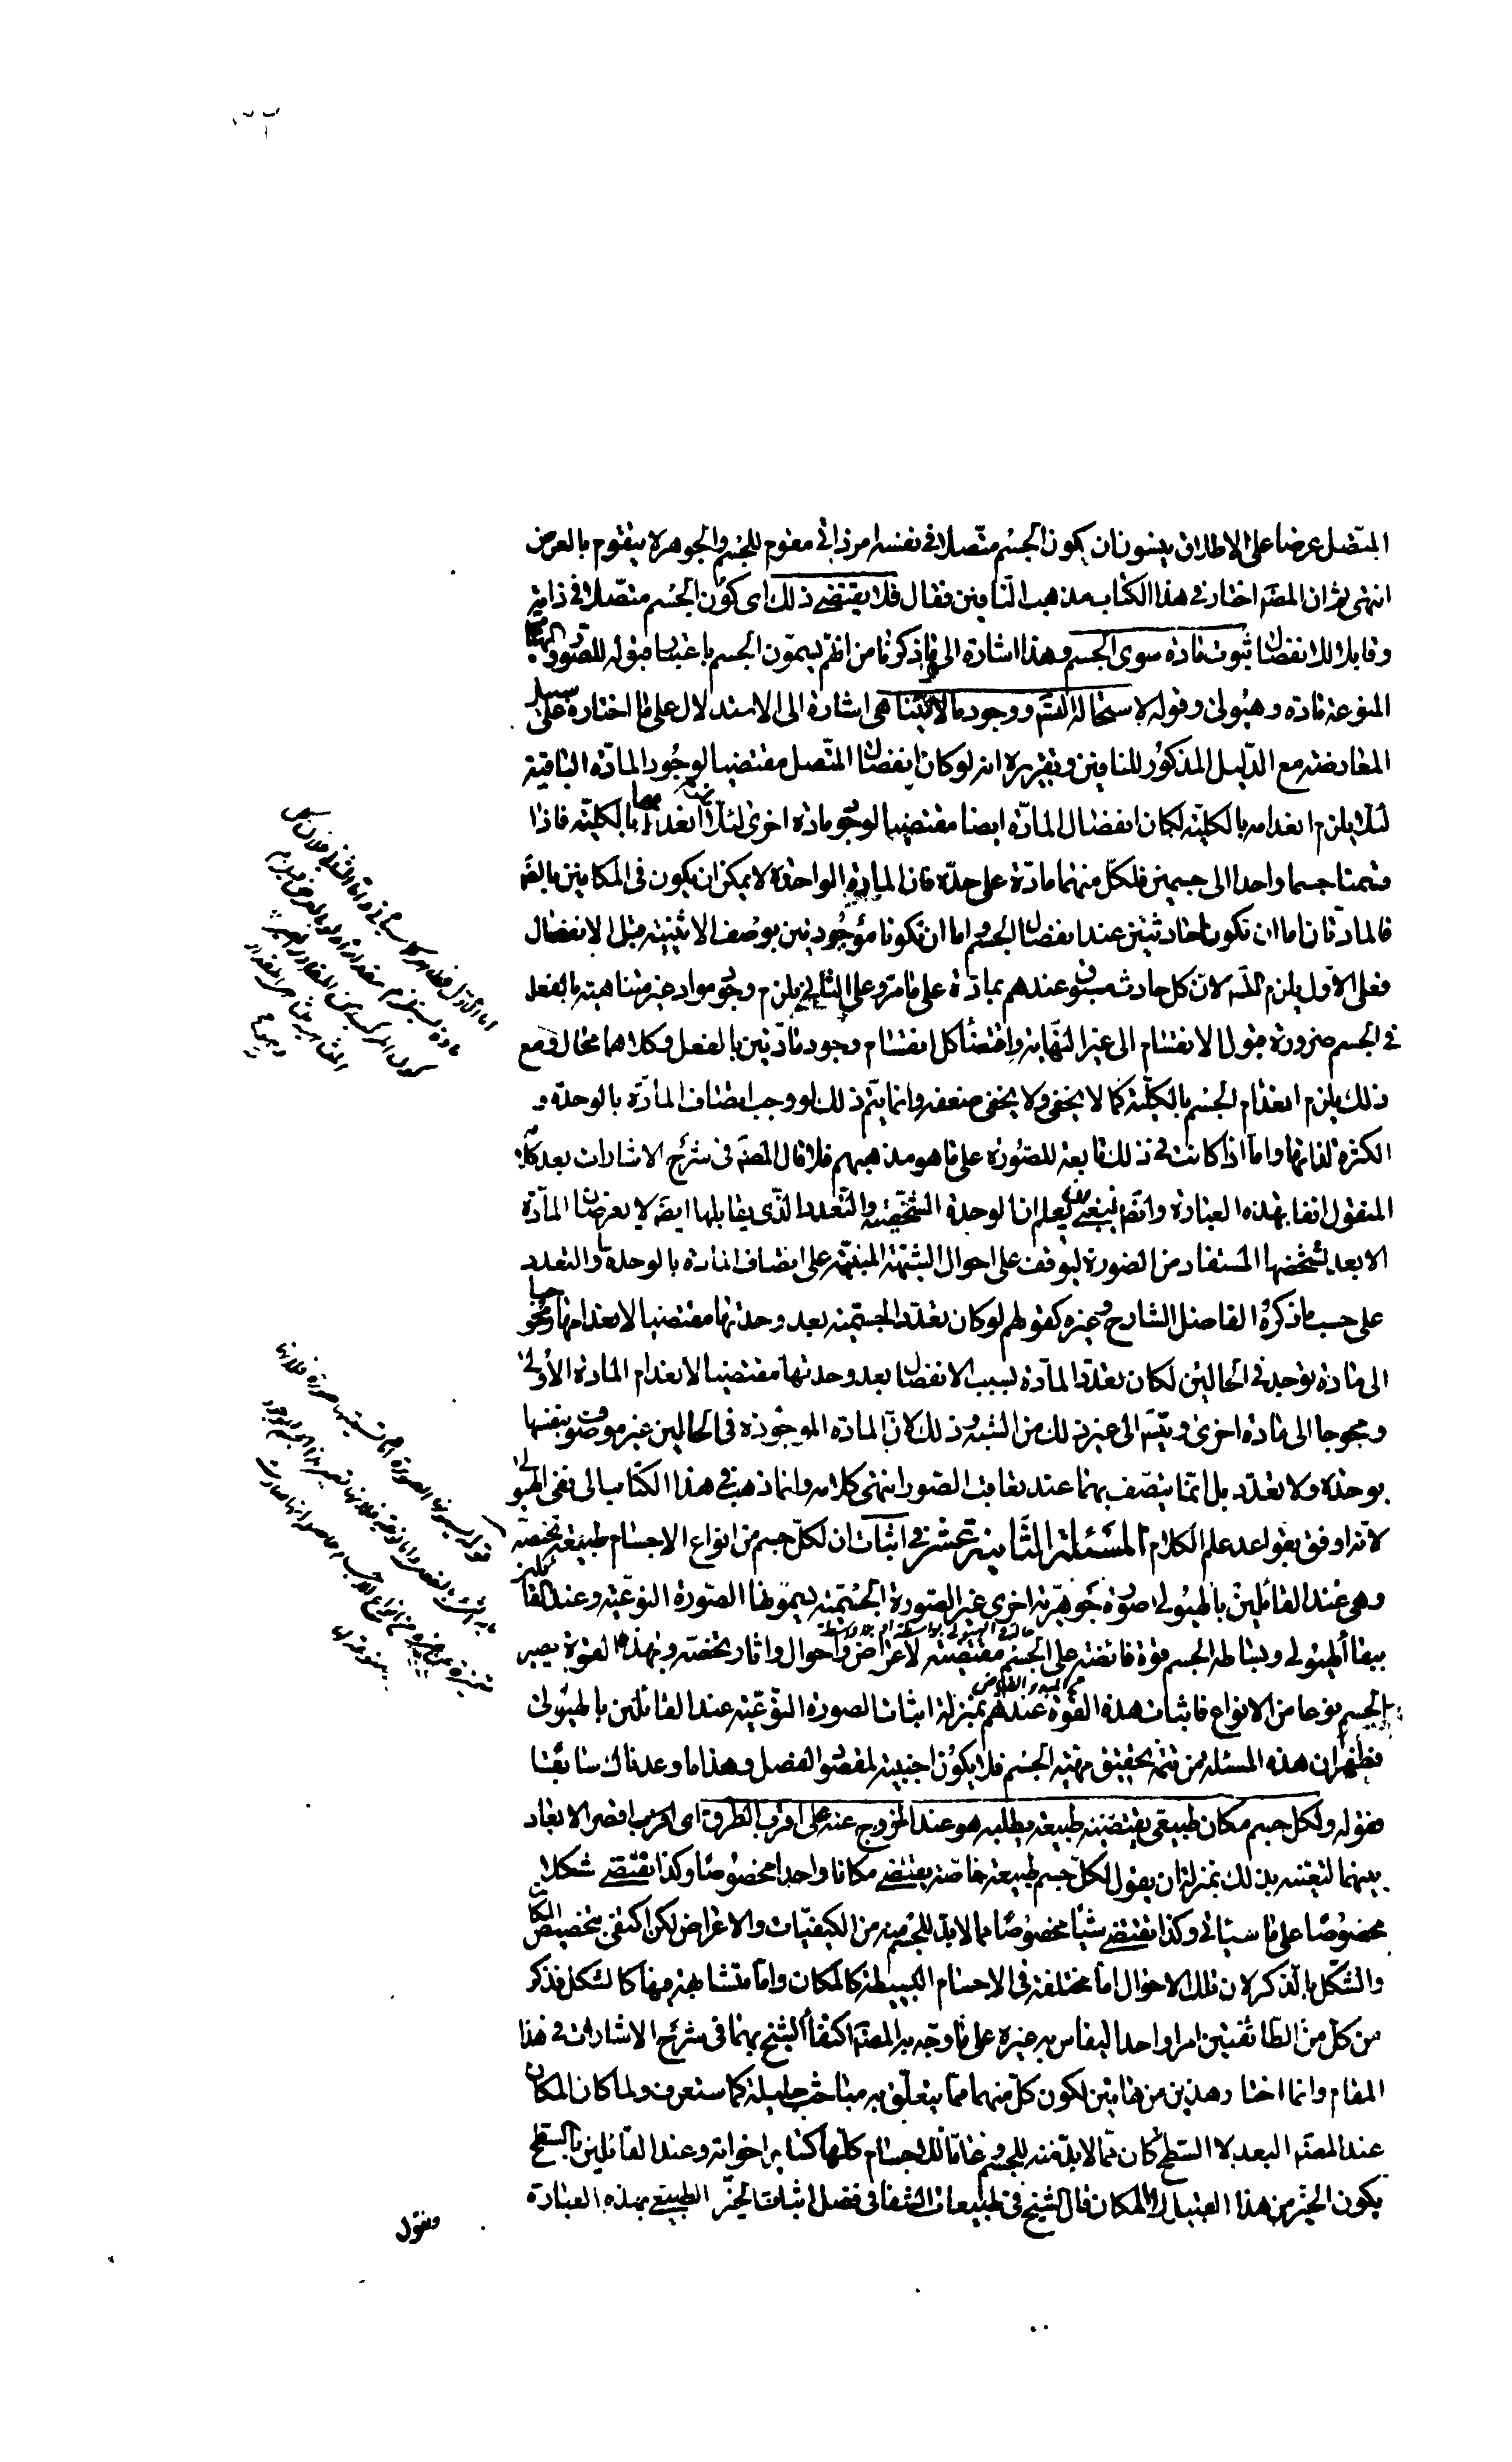 المتصل عرضا على الاطلاق ينسون ان يكون الجسم متصلا فى نفسه امر ذاتى مقوم للجسم والجوهر لا يتقوم بالعرض
انتهى ثم ان المصنه اختار فى هذا الكتاب مذهب النافين فقال فلا يقتضى ذلك اى كون الجسم متصلا فى ذاته
وقابلا للانفصال ثبوت مادة سوى الجسم وهذا اشارة الى ما ذكرنا من انهم يسمون الجسم باعتبار قبوله للصور
المنوعة مادة وهيولى وقوله لاستحالة التسه ووجود ما لا يتناهى اشارة الى الاستدلال على ما اختاره على سبيل
المعارضة مع الدليل المذكور للنافين وتقريره انه لو كان انفصال المتصل مقتضيا لوجود المادة الباقية
لئلا يلزم انعدامه بالكلية لكان انفصال المادة ايضا مقتضيا لوجود مادة اخرى لئلا انعدامها بالكلية فاذا
قسمنا جسما واحدا الى جسمين فلكل منهما مادة على حدة فان المادة الواحدة لا يمكن ان يكون فى المكانين بالضه
فالمادتان اما ان تكونا حادثتين عند انفصال الجسم واما ان تكونا موجودتين بوصف الاثنينية قبل الانفصال
فعلى الاول يلزم التسه لان كل حادث مسبوق عندهم بمادة على ما مر وعلى الثانى يلزم وجود مواد غير متناهية بالفعل
فى الجسم ضرورة قبول الانقسام الى غير النهاية واقتضاء كل انقسام وجود مادتين بالفعل وكلاهما محال ومع
ذلك يلزم انعدام الجسم بالكلية كما لا يخفى ولا يخفى ضعفه وانما يتم ذلك لو وجب اتصاف المادة بالوحدة و
الكثرة لذاتها واما اذا كانت فى ذلك تابعة للصورة على ما هو مذهبهم فلا قال المصنه فى شرح الاشارات بعد كلامه
المنقول انفا بهذه العبارة وانه ينبغى ان يعلم ان الوحدة الشخصية والتعدد الذى يقابلها ايضه لا يعرضان المادة
الا بعد تشخصها المستفاد من الصورة ليوقف على احوال الشبهة المبنية على اتصاف المادة بالوحدة والتعدد
على حسب ما ذكره الفاضل الشارح وغيره كقولهم لو كان تعدد الجسمية بعد وحدتها مقتضيا لانعدامها ومحوجا
الى مادة توجد فى الحالين لكان تعدد المادة بسبب الانفصال بعد وحدتها مقتضيا لانعدام المادة الاولى
ومحوجا الى مادة اخرى ويتسه الى غير ذلك من الشبه وذلك لان المادة الموجودة فى الحالين غير موصوفة بنفسها
بوحدة ولا تعدد بل انما يتصف بهما عند تعاقب الصور انتهى كلامه وانما ذهب فى هذا الكتاب الى نفى الهيولى
لانه اوفق بقواعد علم الكلام المسئلة الثانية عشر فى اثبات ان لكل جسم من انواع الاجسام طبيعة تخصه
وهى عند القائلين بالهيولى صورة جوهرية اخرى غير الصورة الجسمية يسمونها الصورة النوعية وعند القائلين
ببقاء الهيولى وبساطة الجسم قوة فائضة على الجسم مقتضية لاعراض واحوال واثار تخصه وبهذه القوة يصير
الجسم نوعا من الانواع فاثبات هذه القوة عندهم بمنزلة اثبات الصورة النوعية عند القائلين بالهيولى
فظهر ان هذه المسئلة من تتمة تحقيق مهية الجسم فلا يكون اجنبية لمقصود الفصل وهذا ما وعدناك سابقا
فقوله ولكل جسم مكان طبيعى يقتضيه طبيعة ويطلبه هو عند الخروج عنه على اقرب الطرق اى اقرب اقصر الابعاد
بينهما لتعينه بذلك بمنزلة ان يقول لكل جسم طبيعة خاصة يقتضى مكانا واحدا مخصوصا وكذا يقتضى شكلا
مخصوصا على ما سيأتى وكذا تقتضى شيئا مخصوصا مما لا بد للجسم منه من الكيفيات والاعراض لكن اكتفى بتخصيص المكان
والشكل بالذكر لان تلك الاحوال اما مختلفة فى الاجسام البسيطة كالمكان واما متشابهة فيها كالشكل فذكر
من كل من الطائفتين امرا واحدا ليقاس به غيره على ما وجه به المصنه اكتفاء الشيخ بهما فى شرح الاشارات فى هذا
المقام وانما اختار هذين من هاتين لكون كل منهما مما يتعلق به مباحث جليلة كما ستعرف ولما كان المكان
عند المصنه البعد لا السطح كان مما لا بد منه للجسم وعاما للاجسام كلها كسائر اخواته وعند القائلين بالسطح
يكون الحيز من هذا القبيل لا المكان قال الشيخ فى طبيعيات الشفا فى فصل اثبات الحيز الطبيعى بهذه العبارة
ونقول